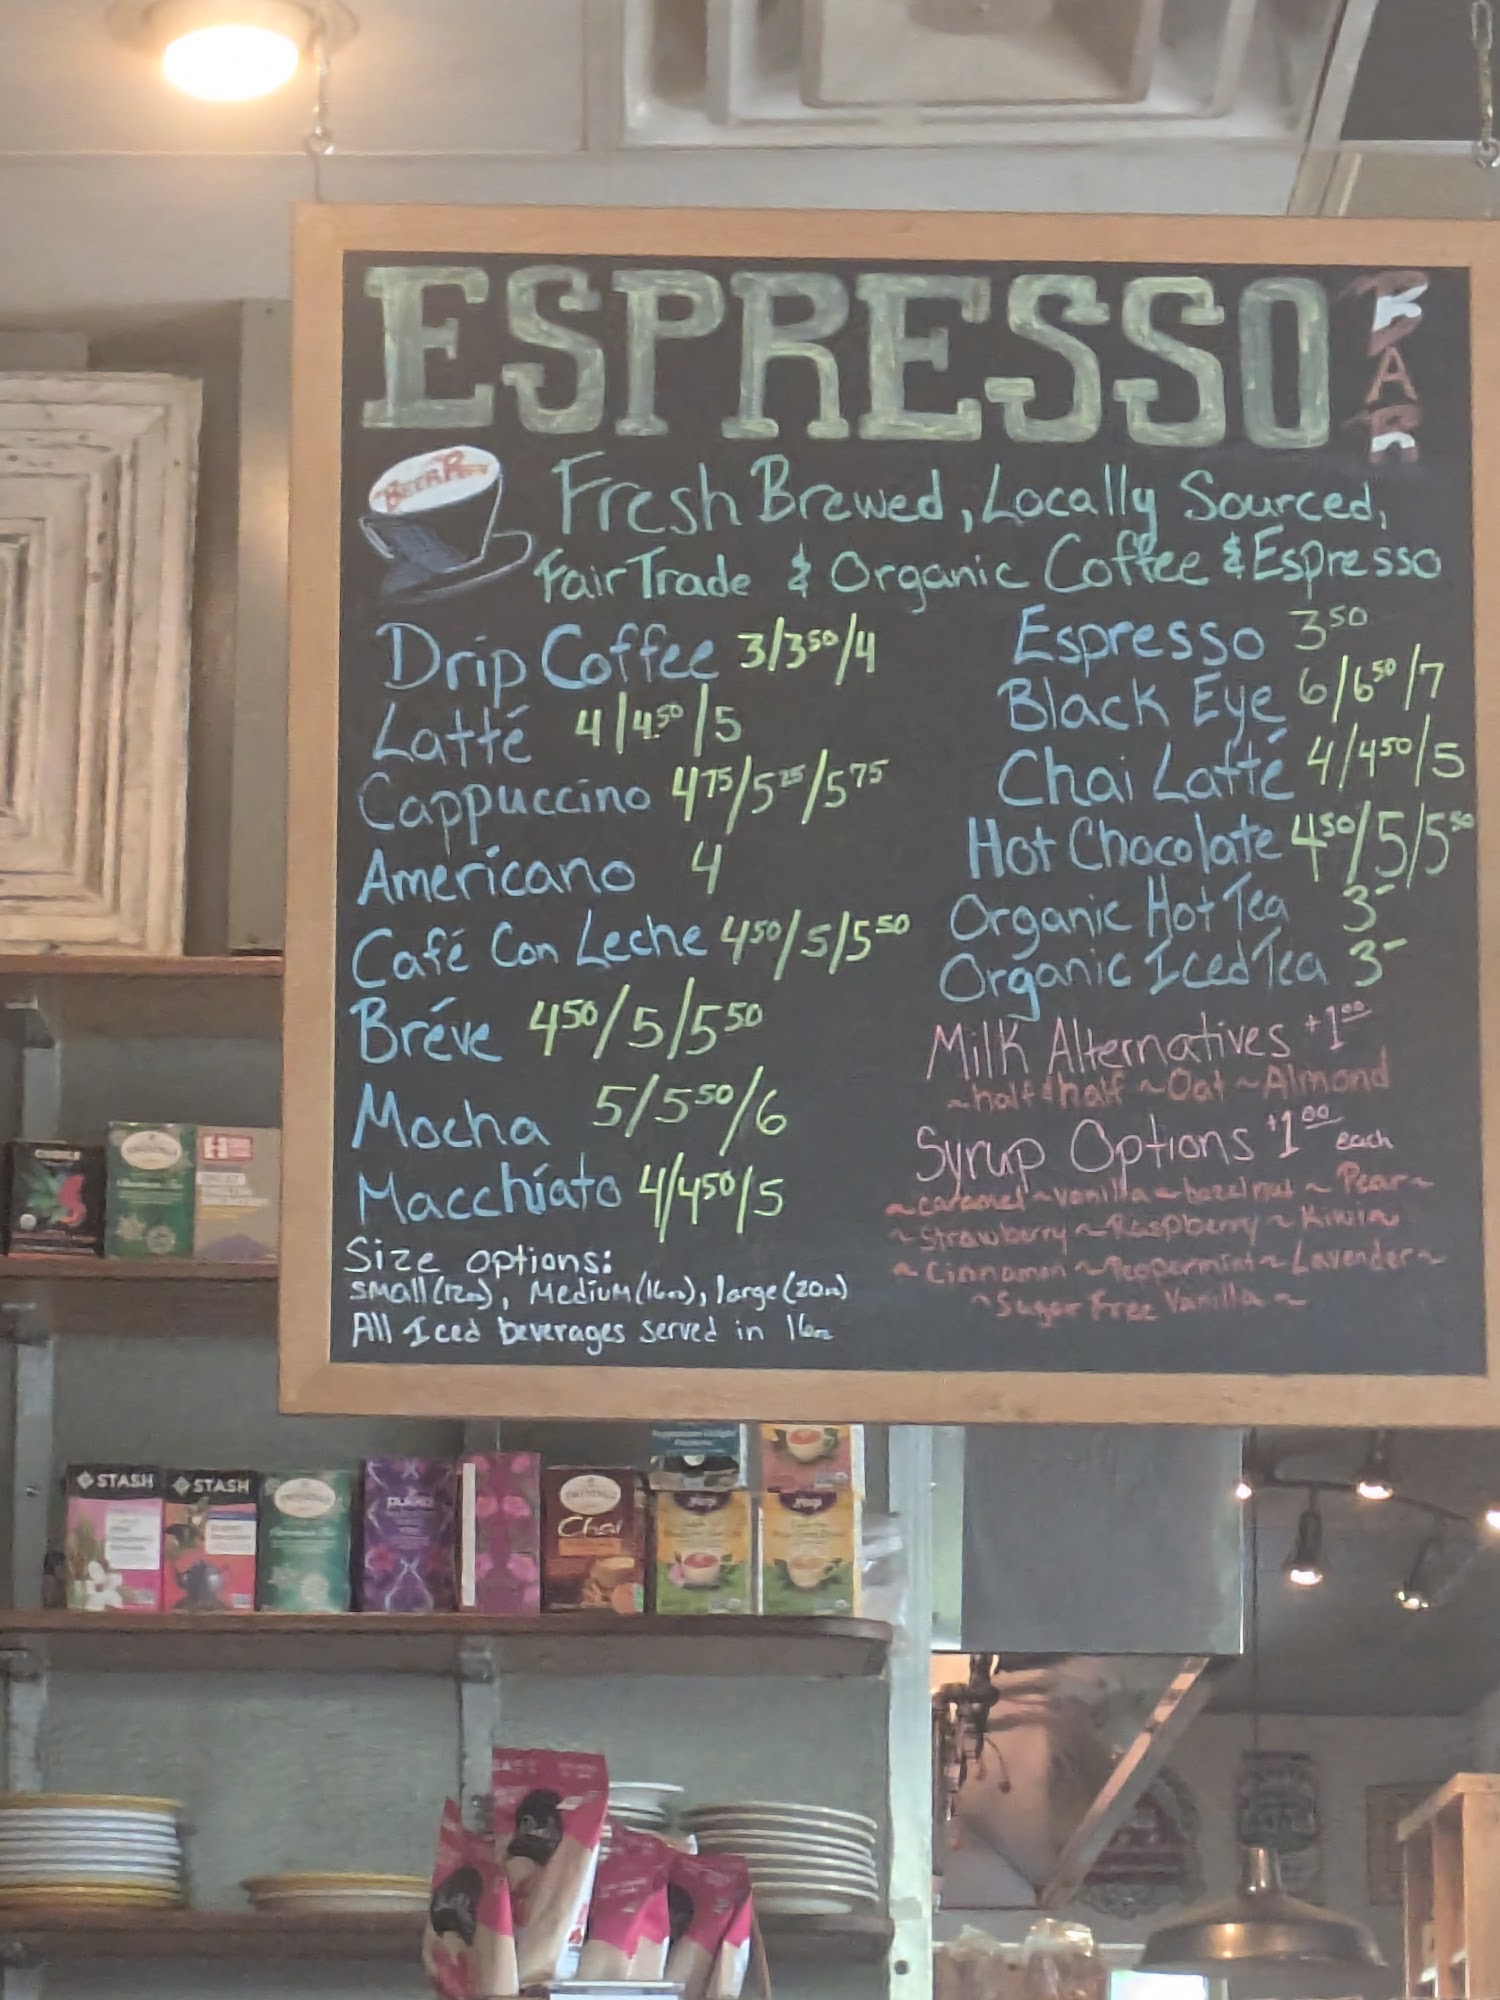 ESPRESSO BAR
Fresh Brewed, Locally Sourced,
Fair Trade & Organic Coffee & Espresso
Drip Coffee 3/350/4
Latté 4/450/5
Cappuccino 475/525/575
Americano 4
Café Con Leche 450/5/550
Bréve 450/5/550
Mocha 5/550/6
Macchiato 4/450/5
Size options:
small(12oz), Medium(16oz), large(20oz)
All Iced beverages served in 16oz
Espresso 350
Black Eye 6/650/7
Chai Latté 4/450/5
Hot Chocolate 450/5/550
Organic Hot Tea 3-
Organic Iced Tea 3-
Milk Alternatives +1.00
~half&half ~Oat ~Almond
Syrup Options +1.00 each
~caramel~vanilla~hazelnut~Pear~
~Strawberry~Raspberry~Kiwi~
~Cinnamon~Peppermint~Lavender~
~Sugar Free Vanilla~
TWININGS
STASH
STASH
TWININGS
pukka
TWININGS
Chai
Yogi
Yogi